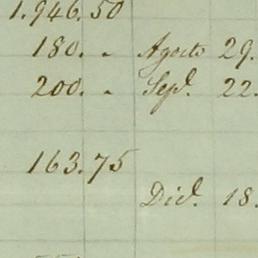 1.946.50
180. " Agosto 29.
200. " Sepe. 22.
163.75
Dice. 18.